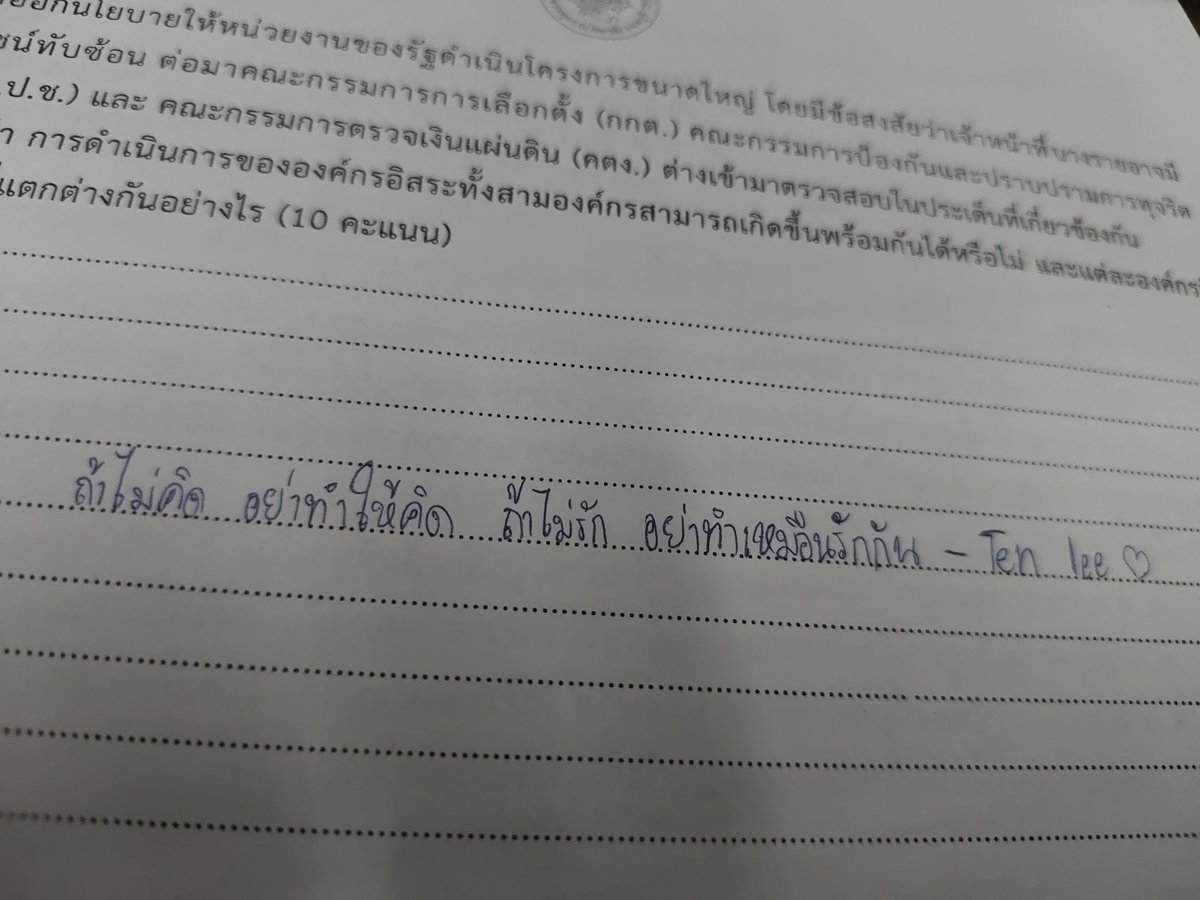 นโยบายให้หน่วยงานของรัฐดำเนินโครงการขนาดใหญ่ โดยมีข้อสงสัยว่าเจ้าหน้าที่บางรายอาจมี
ทับซ้อน ต่อมาคณะกรรมการการเลือกตั้ง (กกต.) คณะกรรมการป้องกันและปราบปรามการทุจริต
ป.ช.) และ คณะกรรมการตรวจเงินแผ่นดิน (คตง.) ต่างเข้ามาตรวจสอบในประเด็นที่เกี่ยวข้องกัน
การดำเนินการขององค์กรอิสระทั้งสามองค์กรสามารถเกิดขึ้นพร้อมกันได้หรือไม่ และแต่ละองค์กร
แตกต่างกันอย่างไร (10 คะแนน)
ถ้าไม่คิด อย่าทำให้คิด ถ้าไม่รัก อย่าทำเหมือนรักกัน - Ten lee ♡